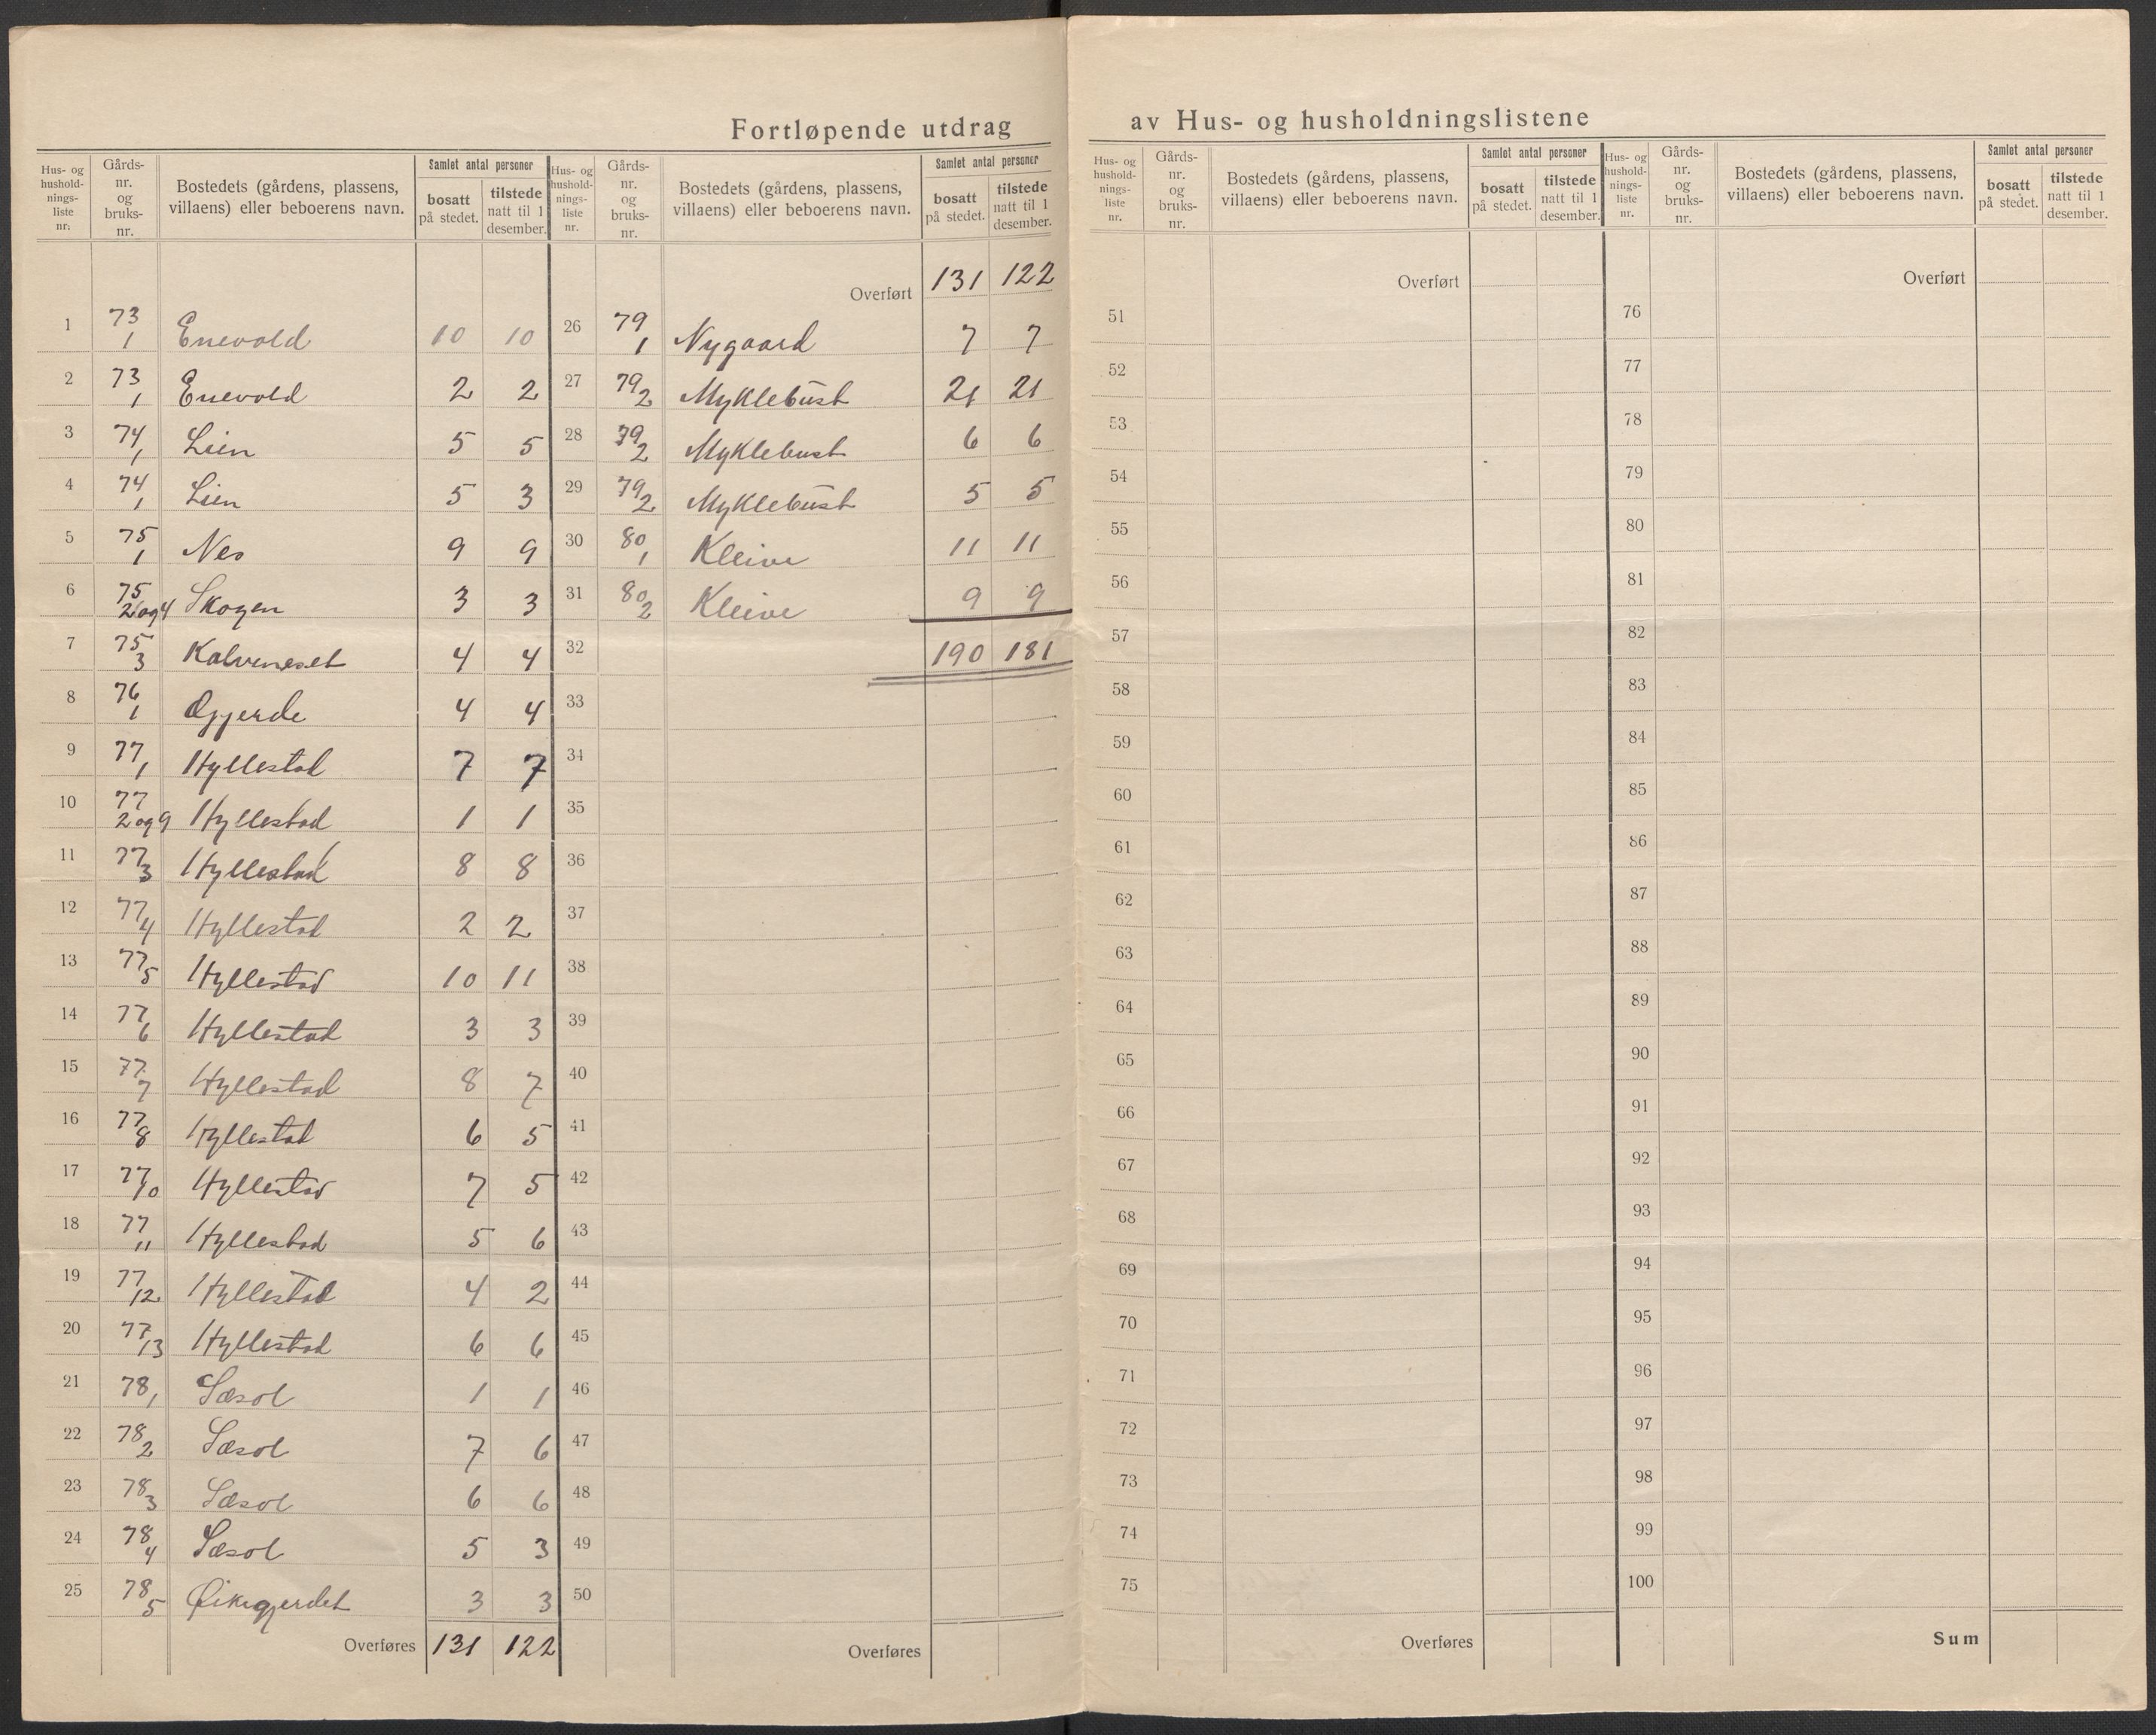 Fortløpende utdrag av Hus- og husholdningslistene
Hus- og hushold-nings-liste nr. Gårds-nr. og bruks-nr. Bostedets (gårdens, plassens, villaens) eller beboerens navn. Samlet antal personer bosatt på stedet. tilstede natt til 1 desember.
1 73/1 Enevold 10 10
2 73/1 Enevold 2 2
3 74/1 Lien 5 5
4 74/1 Lien 5 3
5 75/1 Nes 9 9
6 75/2 og 4 Skogen 3 3
7 75/3 Kalveneset 4 4
8 76/1 Øgjerde 4 4
9 77/1 Hyllestad 7 7
10 77/2 og 9 Hyllestad 1 1
11 77/3 Hyllestad 8 8
12 77/4 Hyllestad 2 2
13 77/5 Hyllestad 10 11
14 77/6 Hyllestad 3 3
15 77/7 Hyllestad 8 7
16 77/8 Hyllestad 6 5
17 77/10 Hyllestad 7 5
18 77/11 Hyllestad 5 6
19 77/12 Hyllestad 4 2
20 77/13 Hyllestad 6 6
21 78/1 Sæsol 1 1
22 78/2 Sæsol 7 6
23 78/3 Sæsol 6 6
24 78/4 Sæsol 5 3
25 78/5 3 3
Overføres 131 122
Hus- og hushold-nings-liste nr. Gårds-nr. og bruks-nr. Bostedets (gårdens, plassens, villaens) eller beboerens navn. Samlet antal personer bosatt på stedet. tilstede natt til 1 desember.
Overført 131 122
26 79/1 Nygaard 7 7
27 79/2 Myklebust 21 21
28 79/2 Myklebust 6 6
29 79/2 Myklebust 5 5
30 80/1 Kleive 11 11
31 80/2 Kleive 9 9
32 190 181
33
34
35
36
37
38
39
40
41
42
43
44
45
46
47
48
49
50
Overføres
Hus- og hushold-nings-liste nr. Gårds-nr. og bruks-nr. Bostedets (gårdens, plassens, villaens) eller beboerens navn. Samlet antal personer bosatt på stedet. tilstede natt til 1 desember.
Overført
51
52
53
54
55
56
57
58
59
60
61
62
63
64
65
66
67
68
69
70
71
72
73
74
75
Overføres
Hus- og hushold-nings-liste nr. Gårds-nr. og bruks-nr. Bostedets (gårdens, plassens, villaens) eller beboerens navn. Samlet antal personer bosatt på stedet. tilstede natt til 1 desember.
Overført
76
77
78
79
80
81
82
83
84
85
86
87
88
89
90
91
92
93
94
95
96
97
98
99
100
Sum